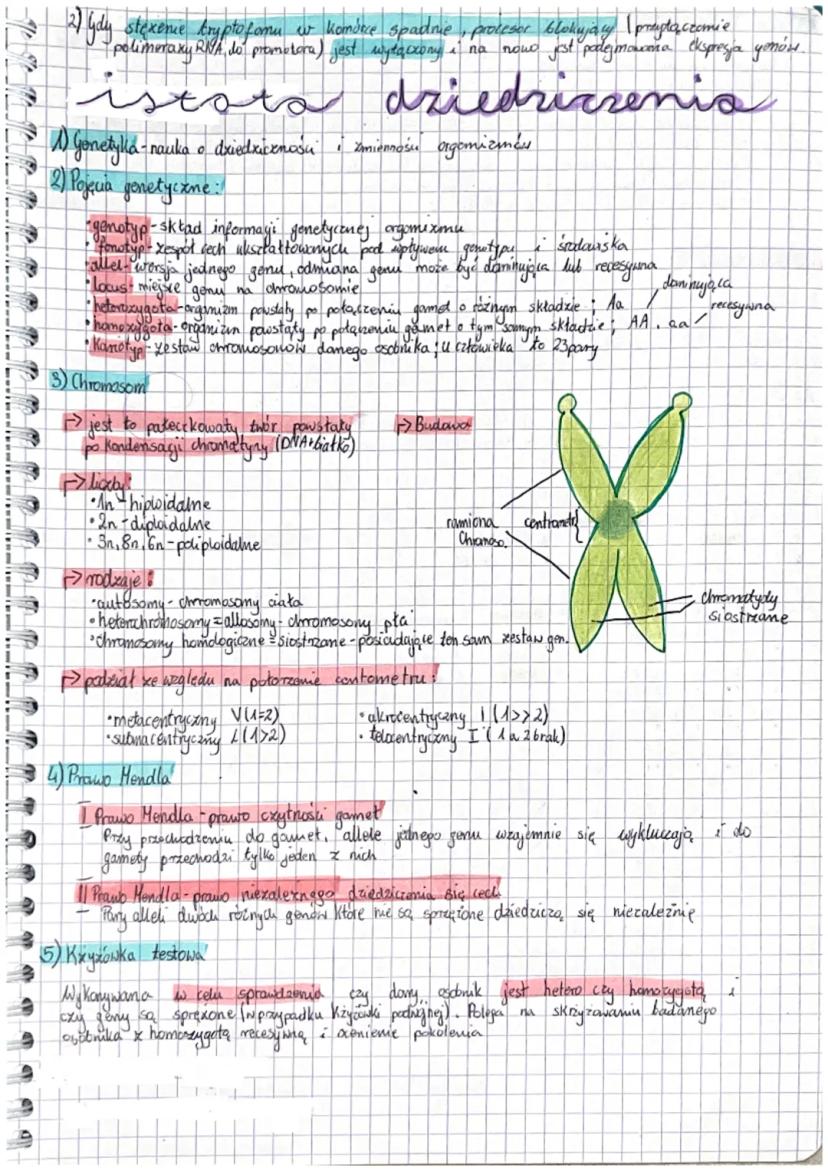 2) Gdy stężenie tryptofanu w komórce spadnie, procesor blokujący (przyłączenie
polimerazy RNA do promotora) jest wyłączony i na nowo jest podejmowana ekspresja genów.
istota dziedziczenia
1) Genetyka - nauka o dziedziczności i zmienności organizmów
2) Pojęcia genetyczne:
• genotyp - skład informacji genetycznej organizmu
• fenotyp - zespół cech ukształtowanych pod wpływem genotypu i środowiska
• allel - wersja jednego genu, odmiana genu może być dominująca lub recesywna
• locus - miejsce genu na chromosomie
• heterozygota - organizm powstały po połączeniu gamet o różnym składzie; Aa
dominująca
• homozygota - organizm powstały po połączeniu gamet o tym samym składzie; AA, aa
recesywna
• Kariotyp - zestaw chromosonów danego osobnika; u człowieka to 23pary
3) Chromosom
→ jest to pałeczkowaty twór powstały
po kondensacji chromatyny (DNA+białko)
→ Budowa
→ liczby:
• 1n - hiploidalne
• 2n - diploidalne
• 3n, 8n, 6n - poliploidalne
ramiona
Chromoso.
centrometr
chromatydy
siostrzane
→ rodzaje:
• autosomy - chromosomy ciała
• heterchromosomy = allosomy - chromosomy płci
• chromosomy homologiczne = siostrzane - posiadające ten sam zestaw gen.
→ podział ze względu na położenie centometru:
• metacentryczny V (1=2)
• submacentryczny L (1>2)
• akrocentryczny I (1>>2)
• telocentryczny I (1 a 2 brak)
4) Prawo Mendla
I Prawo Mendla - prawo czytności gamet
Przy przechodzeniu do gamet, allele jednego genu wzajemnie się wykluczają i do
gamety przechodzi tylko jeden z nich
II Prawo Mendla - prawo niezależnego dziedziczenia się cech
Pary alleli dwóch różnych genów które nie są sprzężone dziedziczą się niezależnie
5) Krzyżówka testowa
Wykonywana w celu sprawdzenia czy dany osobnik jest hetero czy homozygotą i
czy geny są sprzężone (w przypadku krzyżówki podwójnej). Polega na skrzyżowaniu badanego
osobnika z homozygotą recesywną i ocenienie pokolenia